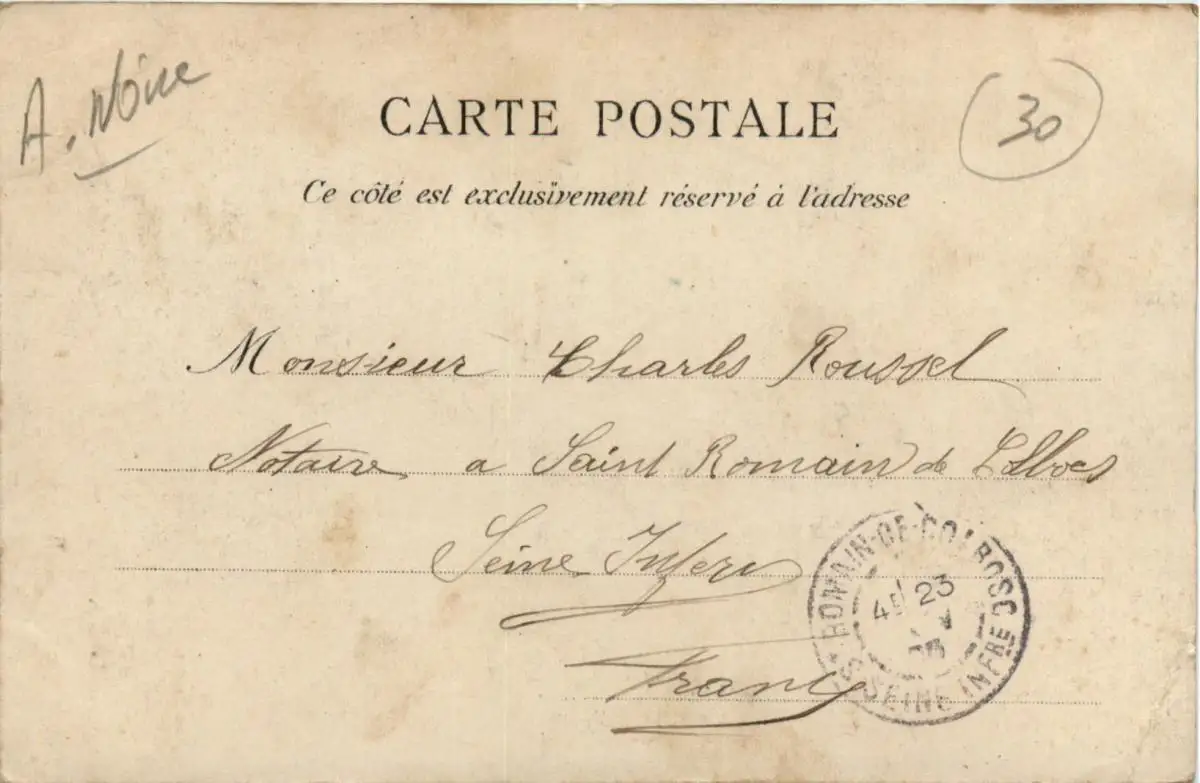 A. Noire
CARTE POSTALE
30
Ce côté est exclusivement réservé à l'adresse
Monsieur Charles Roussel
Notaire a Saint Romain de
Seine Inferre
France
ST ROMAIN-DE-COLBOSC
4E 23
SEINE INFRE